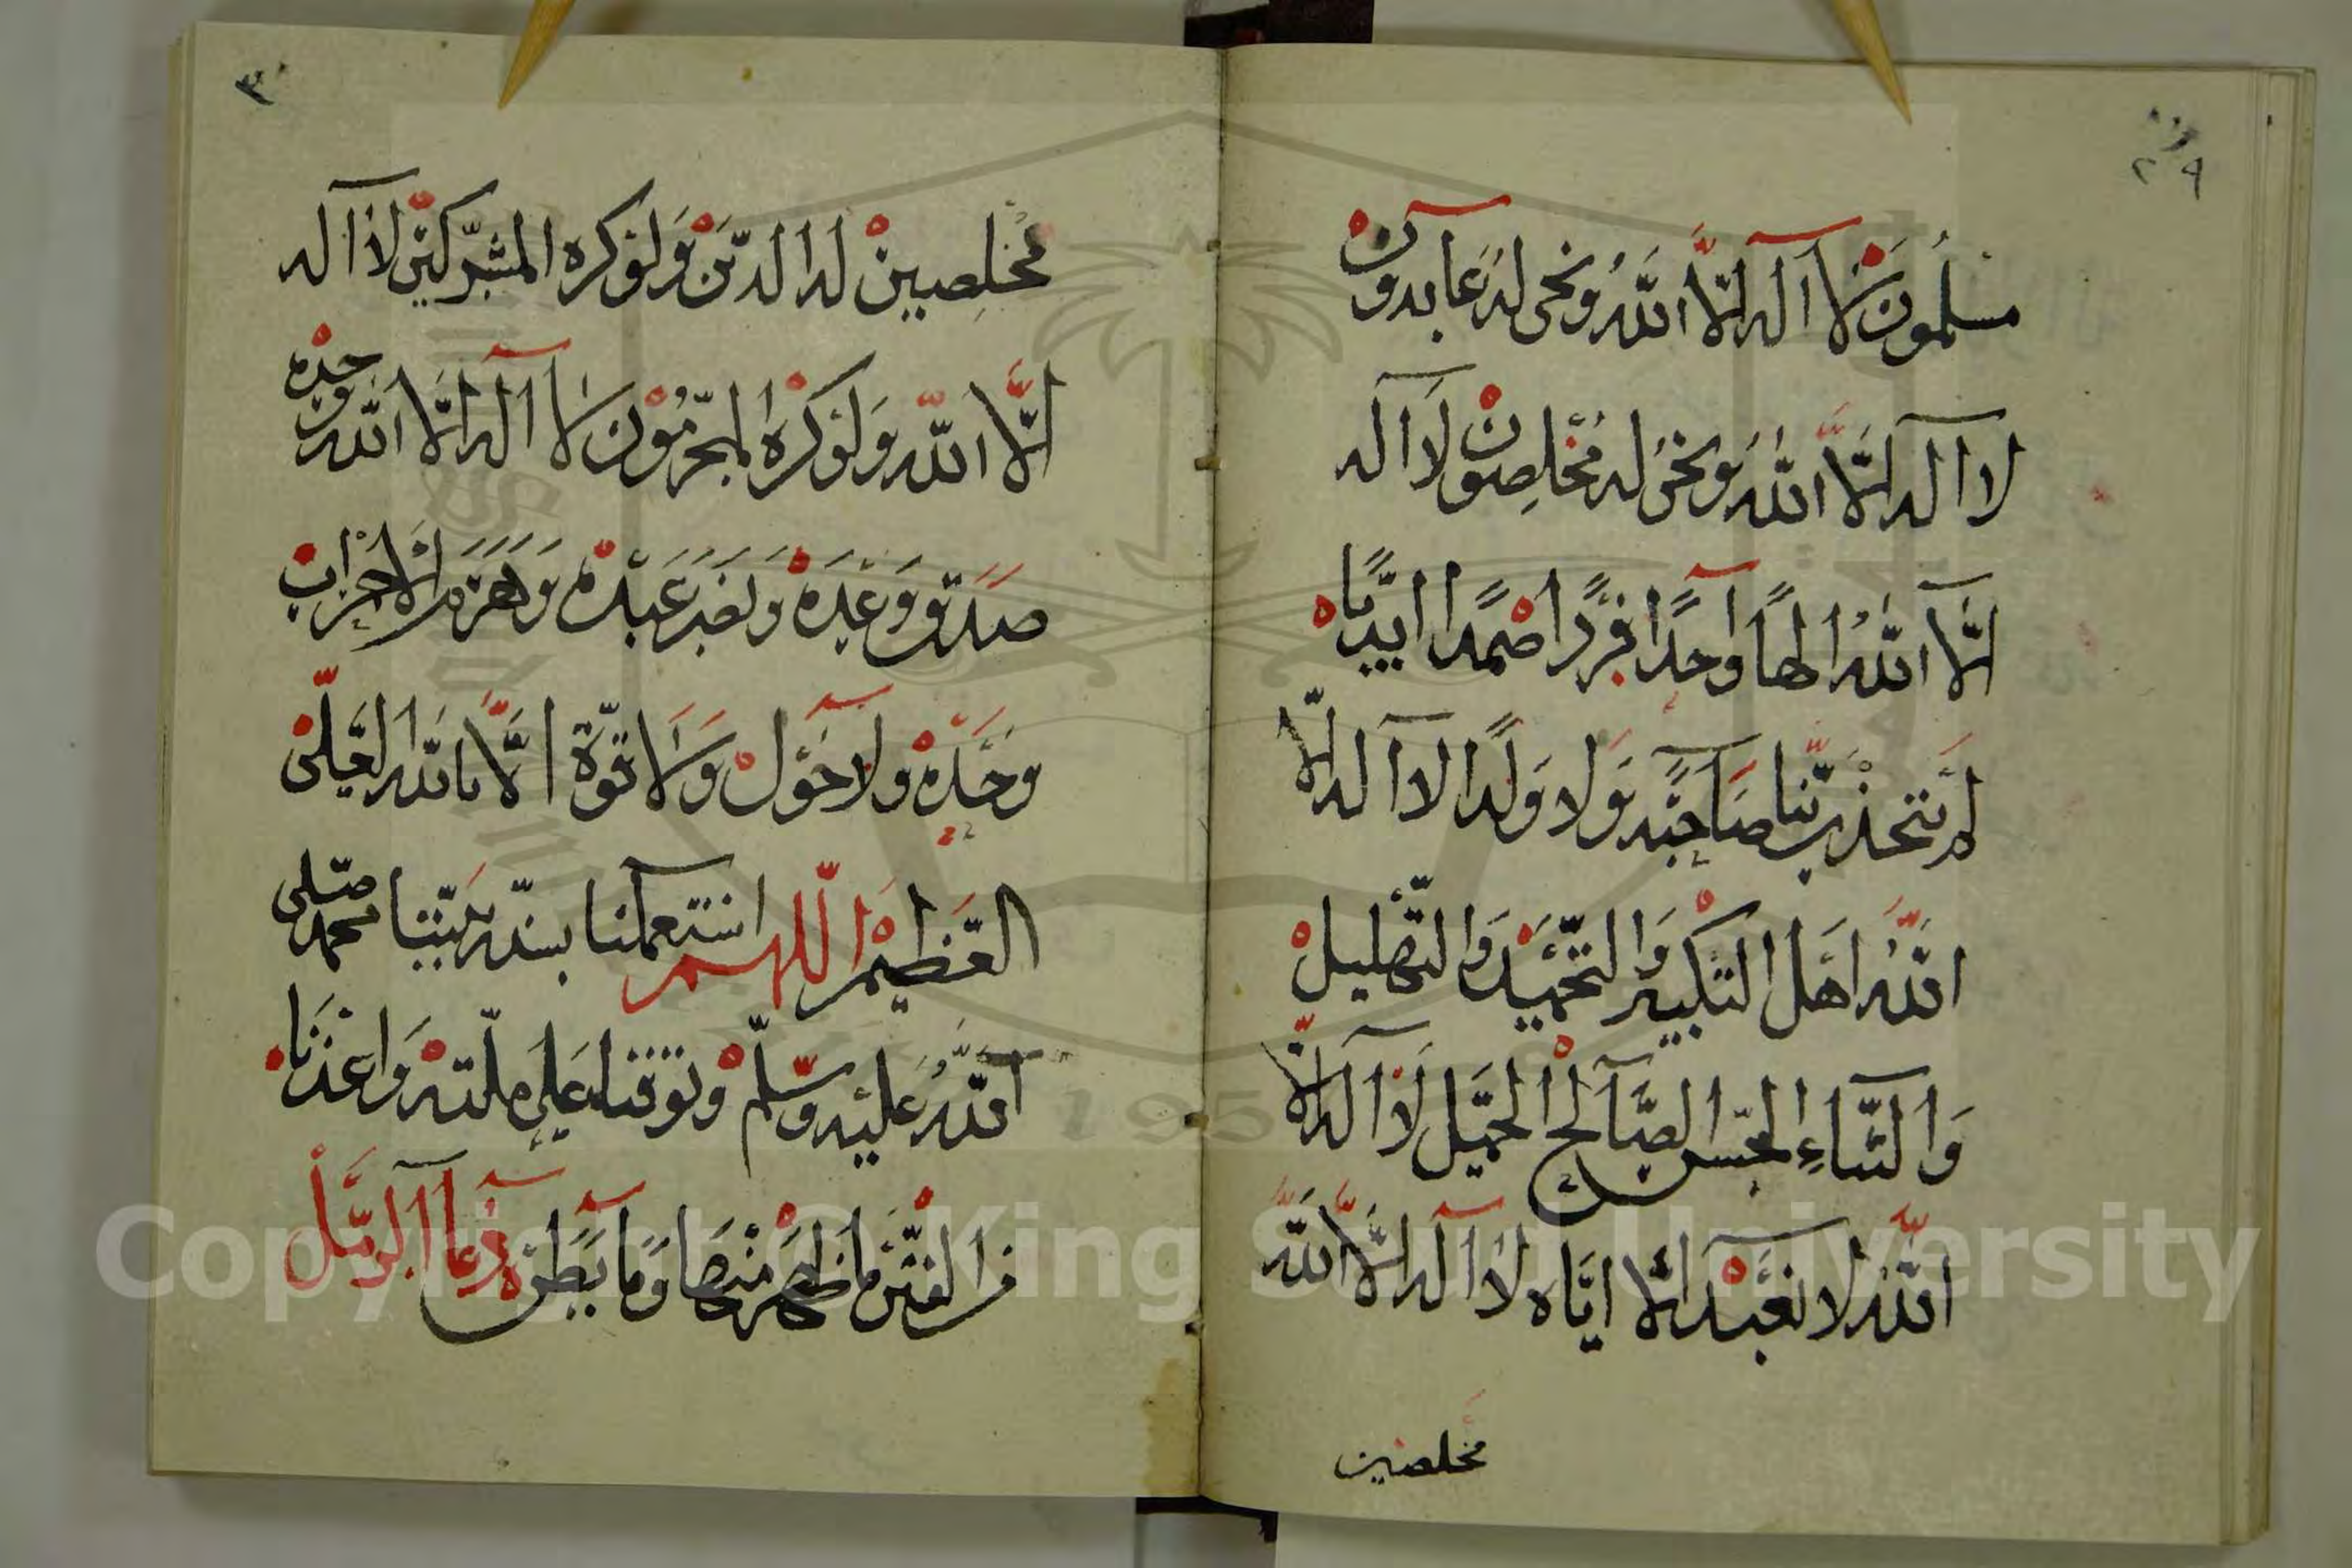 ٢٩
مسلمون لا اله الا الله ونحن له عابدون
لا اله الا الله ونحن له مخلصون لا اله
الا الله الها واحدا فردا صمدا
لم يتخذ ربنا صاحبة ولا ولدا لا اله الا
الله اهل التكبير والتحميد والتهليل
والثناء الحسن الصالح الجميل لا اله الا
الله لا نعبد الا اياه لا اله الا الله
مخلصين
٣٠
مخلصين له الدين ولو كره المشركين لا اله
الا الله ولو كره المجرمون لا اله الا الله وحده
صدق وعده ونصر عبده وهزم الاحزاب
وحده ولا حول ولا قوة الا بالله العلى
العظيم اللهم استعملنا بسنة نبينا محمد صلى
الله عليه وسلم وتوفنا على ملته واعذنا
من الفتن ما ظهر منها وما بطن دعا الرمل
Copyright © King Saud University
195